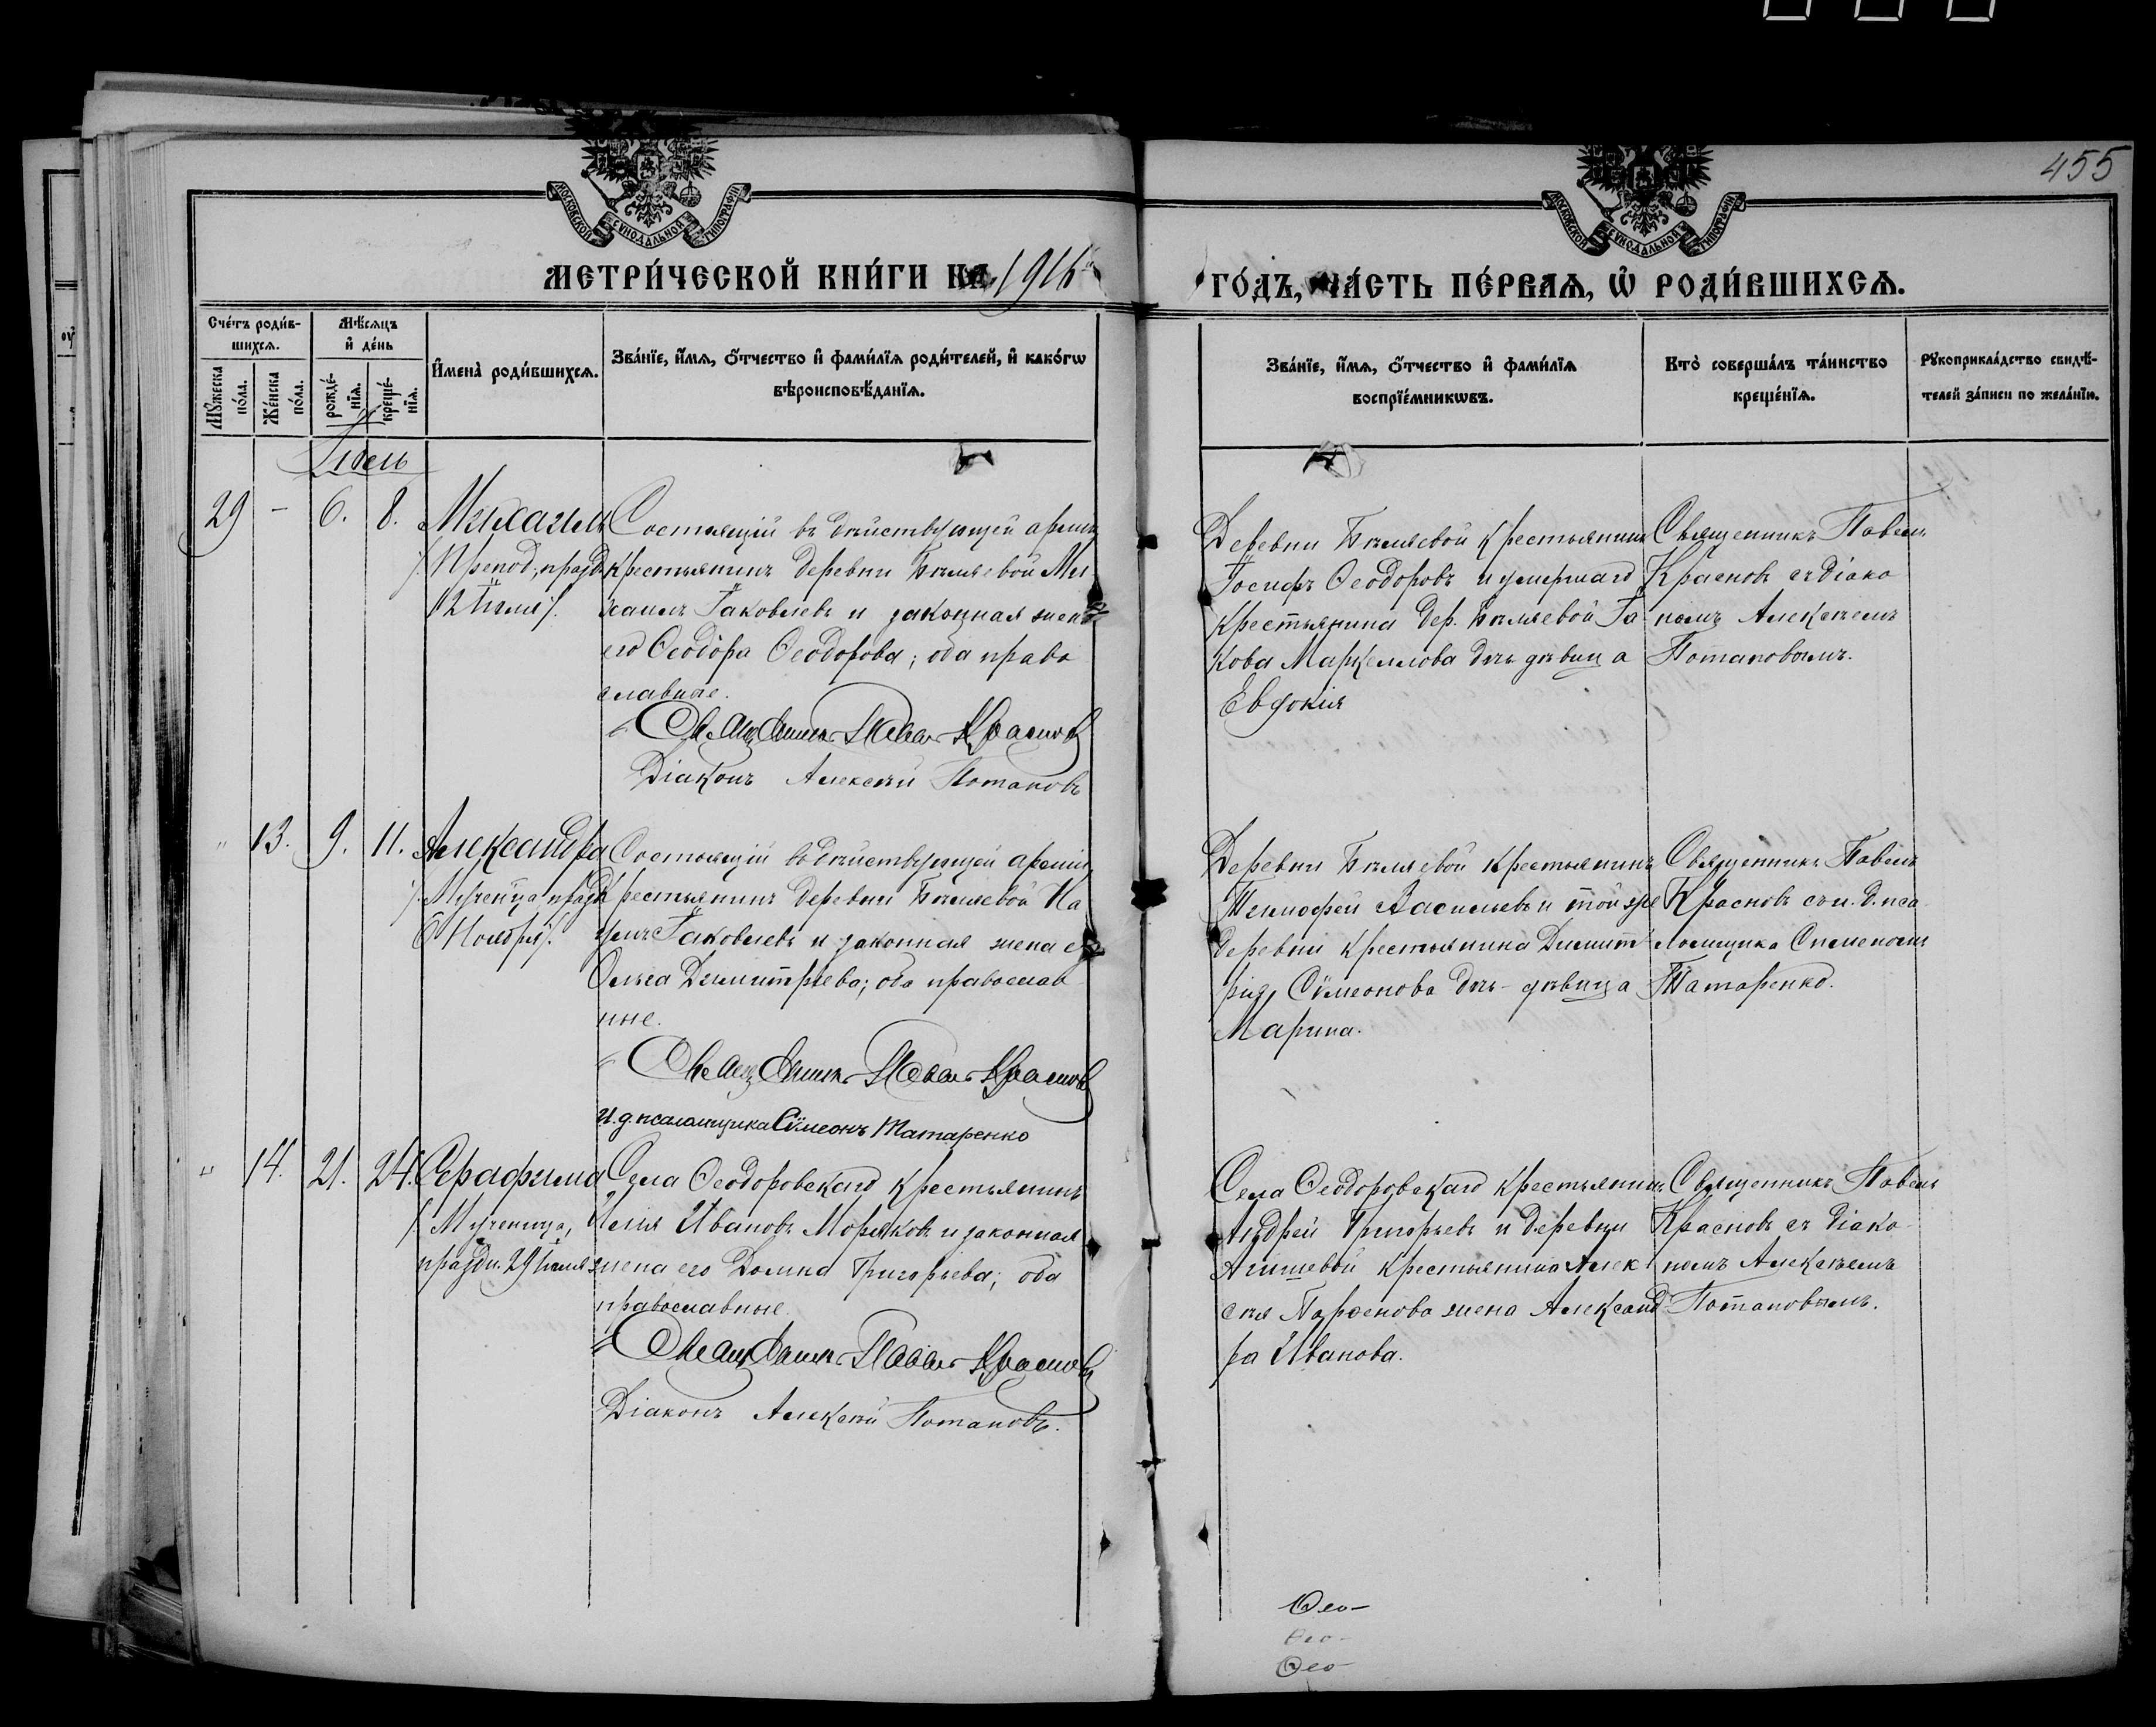 455
МОСКОВСКОЙ СѴНОДАЛЬНОЙ ТИПОГРАФІИ
МОСКОВСКОЙ СѴНОДАЛЬНОЙ ТИПОГРАФІИ
МЕТРИ́ЧЕСКОЙ КНИ́ГИ НА 1916
ГО́ДЪ, ЧА́СТЬ ПЕ́РВАѦ, Ѡ҆ РОДИ́ВШИХСѦ.
Сче́тъ роди́в-
шихсѧ.
Мѣ́сѧцъ
и҆ де́нь
Мꙋ́жеска
по́ла.
Же́нска
по́ла.
рожде́-
нїѧ.
креще́-
нїѧ.
И҆мена̀ роди́вшихсѧ.
Зва́нїе, и҆́мѧ, ѻ҆́тчество и҆ фами́лїѧ роди́телей, и҆ како́гѡ
вѣроисповѣ́данїѧ.
Зва́нїе, и҆́мѧ, ѻ҆́тчество и҆ фами́лїѧ
воспрїе́мникѡвъ.
Кто̀ соверша́лъ та́инство
креще́нїѧ.
Рꙋкоприкла́дство свидѣ́-
телей за́писи по жела́нїю.
29 - 6. 8. Михаилъ
/Препод., празд.
12 Іюля/.
Состоящій въ дѣйствующей арміи,
крестьянинъ деревни Бѣляевой Ми
хаилъ Іаковлевъ и законная жена
его Ѳеодора Ѳеодорова; оба право
славные.
Священникъ Павелъ Красновъ
Діаконъ Алексѣй Потаповъ
Деревни Бѣляевой крестьянинъ
Іосифъ Ѳеодоровъ и умершаго
крестьянина дер. Бѣляевой Іа
кова Маркеллова дочь дѣвица
Евдокія
Священникъ Павелъ
Красновъ съ діако
номъ Алексѣемъ
Потаповымъ.
" 13. 9. 11. Александра
/Мученица, празд.
6 Ноября/.
Состоящій въ дѣйствующей арміи,
крестьянинъ деревни Бѣляевой На
умъ Іаковлевъ и законная жена его
Ольга Димитріева; оба православ
ные.
Священникъ Павелъ Красновъ
И. д. псаломщика Сѵмеонъ Татаренко
Деревни Бѣляевой крестьянинъ
Тимофей Васильевъ и той же
деревни крестьянина Димит
рія Сѵмеонова дочь - дѣвица
Марина.
Священникъ Павелъ
Красновъ съ и. д. пса
ломщика Сѵмеономъ
Татаренко.
" 14. 21. 24. Серафима
/Мученица,
праздн. 29 Іюля
Села Ѳеодоровскаго крестьянинъ
Илія Ивановъ Моряковъ и законная
жена его Домна Григорьева; оба
православные.
Священникъ Павелъ Красновъ
Діаконъ Алексѣй Потаповъ.
Села Ѳеодоровскаго крестьянинъ
Андрей Григорьевъ и деревни
крестьянина Алек
сѣя Парѳенова жена Александ
ра Иванова.
Священникъ Павелъ
Красновъ съ діако-
номъ Алексѣемъ
Потаповымъ.
Ѳео-
Ѳео-
Ѳео-